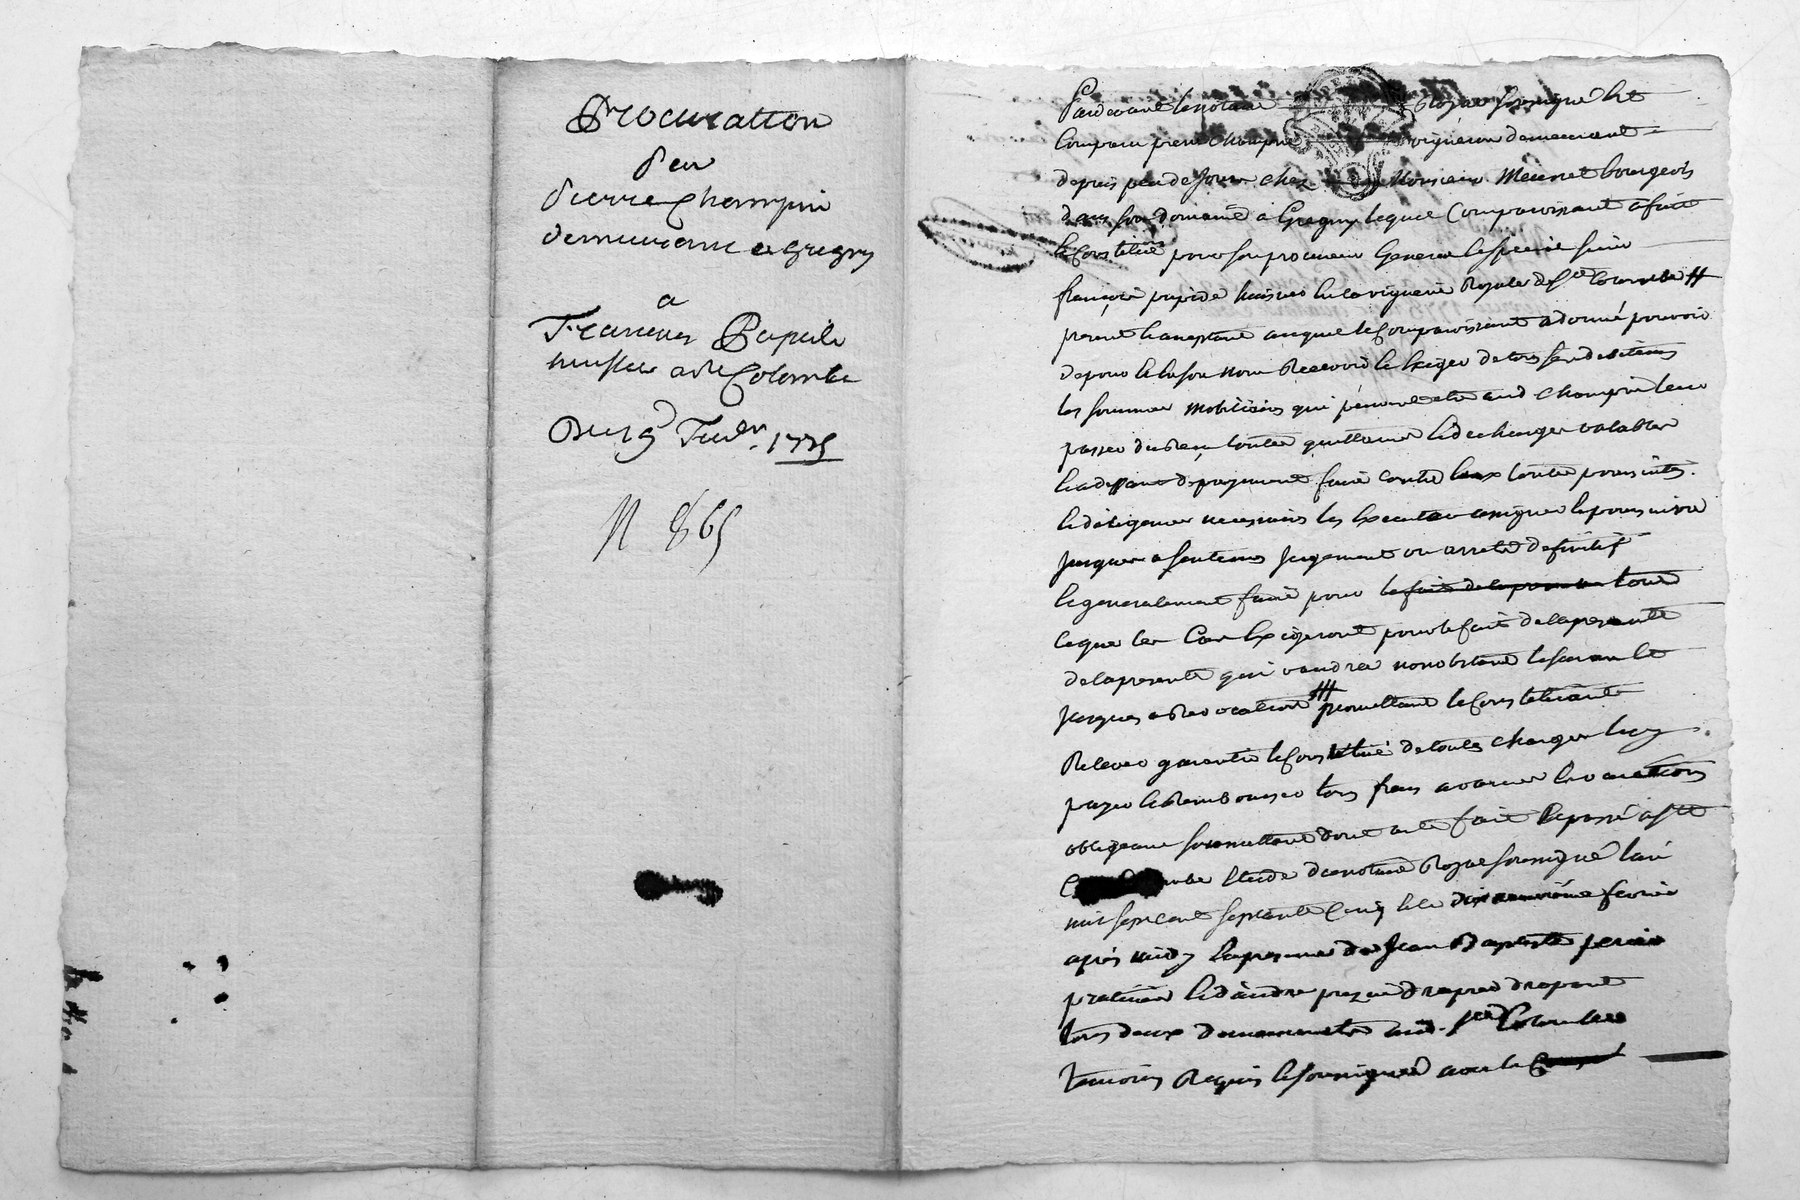 Procuration
par
pierre Champin
demeurant a Grigny
a
François Papile
huissier a Ste Colombe
Du 19 Fevr. 1775
N 865
Pardevant le notaire Royal soussigné est
comparu pierre Champin vigneron demeurant
depuis peu de jour chez Monsieur Meunet bourgeois
dans son domaine a Grigny lequel comparoissant a fait
et constitué pour son procureur General et special sieur
françois huissier en la viguerie Royale de Ste Colombe
present acceptant auquel le comparoissant a donné pouvoir
de pour et en son nom Recevoir et Exiger de tous ses debiteurs
les sommes mobiliaires qui peuvent etre aud Champin leur
passer du Receu toutes quittances et decharges valables
et a deffaut de payement faire contre eux toutes poursuites
et diligences necessaires les Executer assigner et poursuivre
jusques a sentence jugement ou arrets definitif
et generalement faire pour le fait de la tout
ce que les Cas Exigeront pour le fait de la presente
de la presente qui vaudra nonobstant
jusques a Revocation promettant le Constituant
Relever garantir le Constitué de toutes charges
payer et Rembourser tous frais avances et vacations
obligeant soumettant dont acte fait et passé a Ste
Etude du notaire Royal soussigné l'an
mil sept cent septante Cinq et le dix neuvième fevrier
après midy En presence de Jean Baptiste perier
praticien et d'andré
tous deux demeurants aud. Ste Colombe
temoins Requis et soussignés avec le